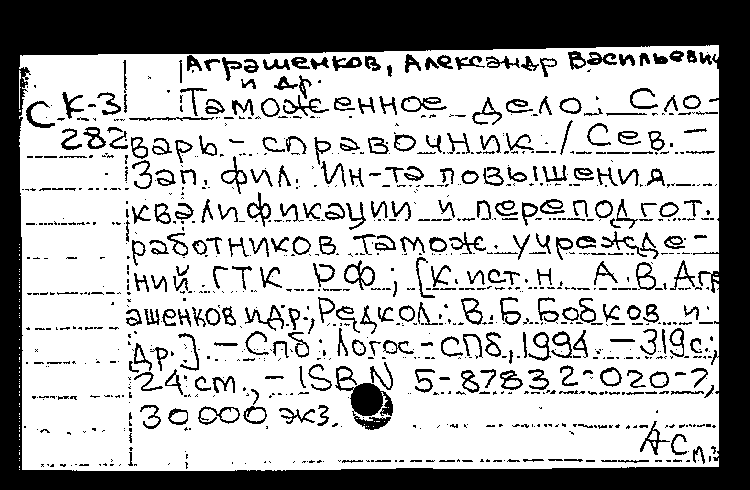 Аграшенков, Александр Васильевич
и др.
С К-3 Таможенное дело: Сло-
282 варь-справочник / Сев.-
Зап. фил. Ин-та повышения
квалификации и переподгот.
работников тамож. учрежде-
ний ГТК РФ; [к.ист.н. А.В.Агр
ашенков и др.; Редкол.: В.Б.Бобков и
др.] - Спб: Логос-СПб, 1994. - 319с.;
24 см., - ISBN 5-87832-020-7,
30000 экз.